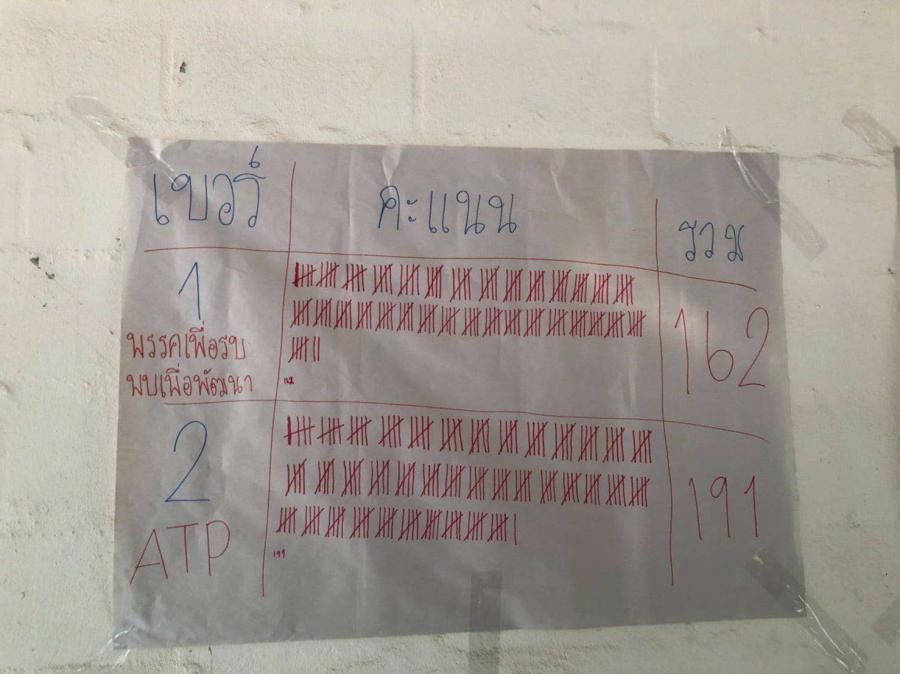 เบอร์ คะแนน รวม
1 162
พรรคเพื่อรบ
พบเพื่อพัฒนา
162
2 191
ATP
191